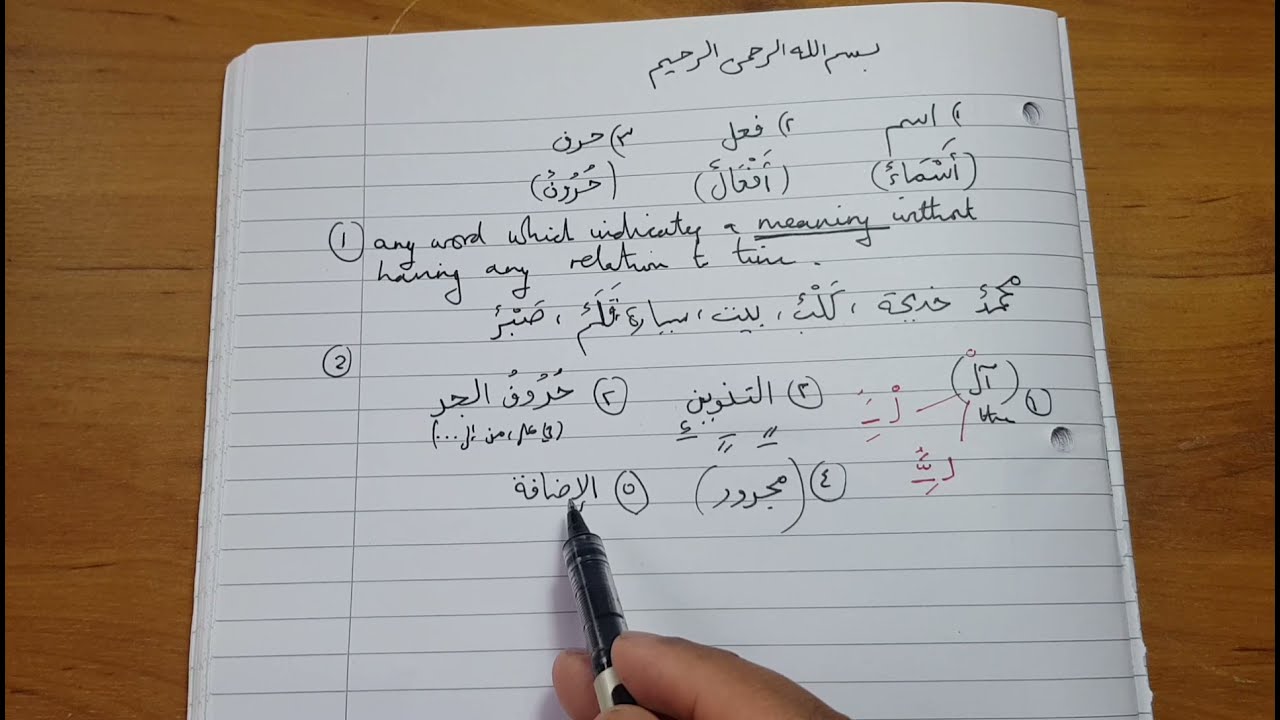 بسم الله الرحمن الرحيم
١) اسم ٢) فعل ٣) حرف
(أَسْمَاءٌ) (أَفْعَالٌ) (حُرُوْفٌ)
① any word which indicates a meaning without
having any relation to time.
مُحَمَّدٌ خديجة ، كَلْبٌ ، بيت ، سيارة قَلَمٌ ، صَبْرٌ
②
① (اَلْ) ③ التنوين ② حُرُوْفُ الجر
the ـًـ ـٍـ ـٌـ (في على، من إلى ...)
④ (مجرور) ⑤ الإضافة